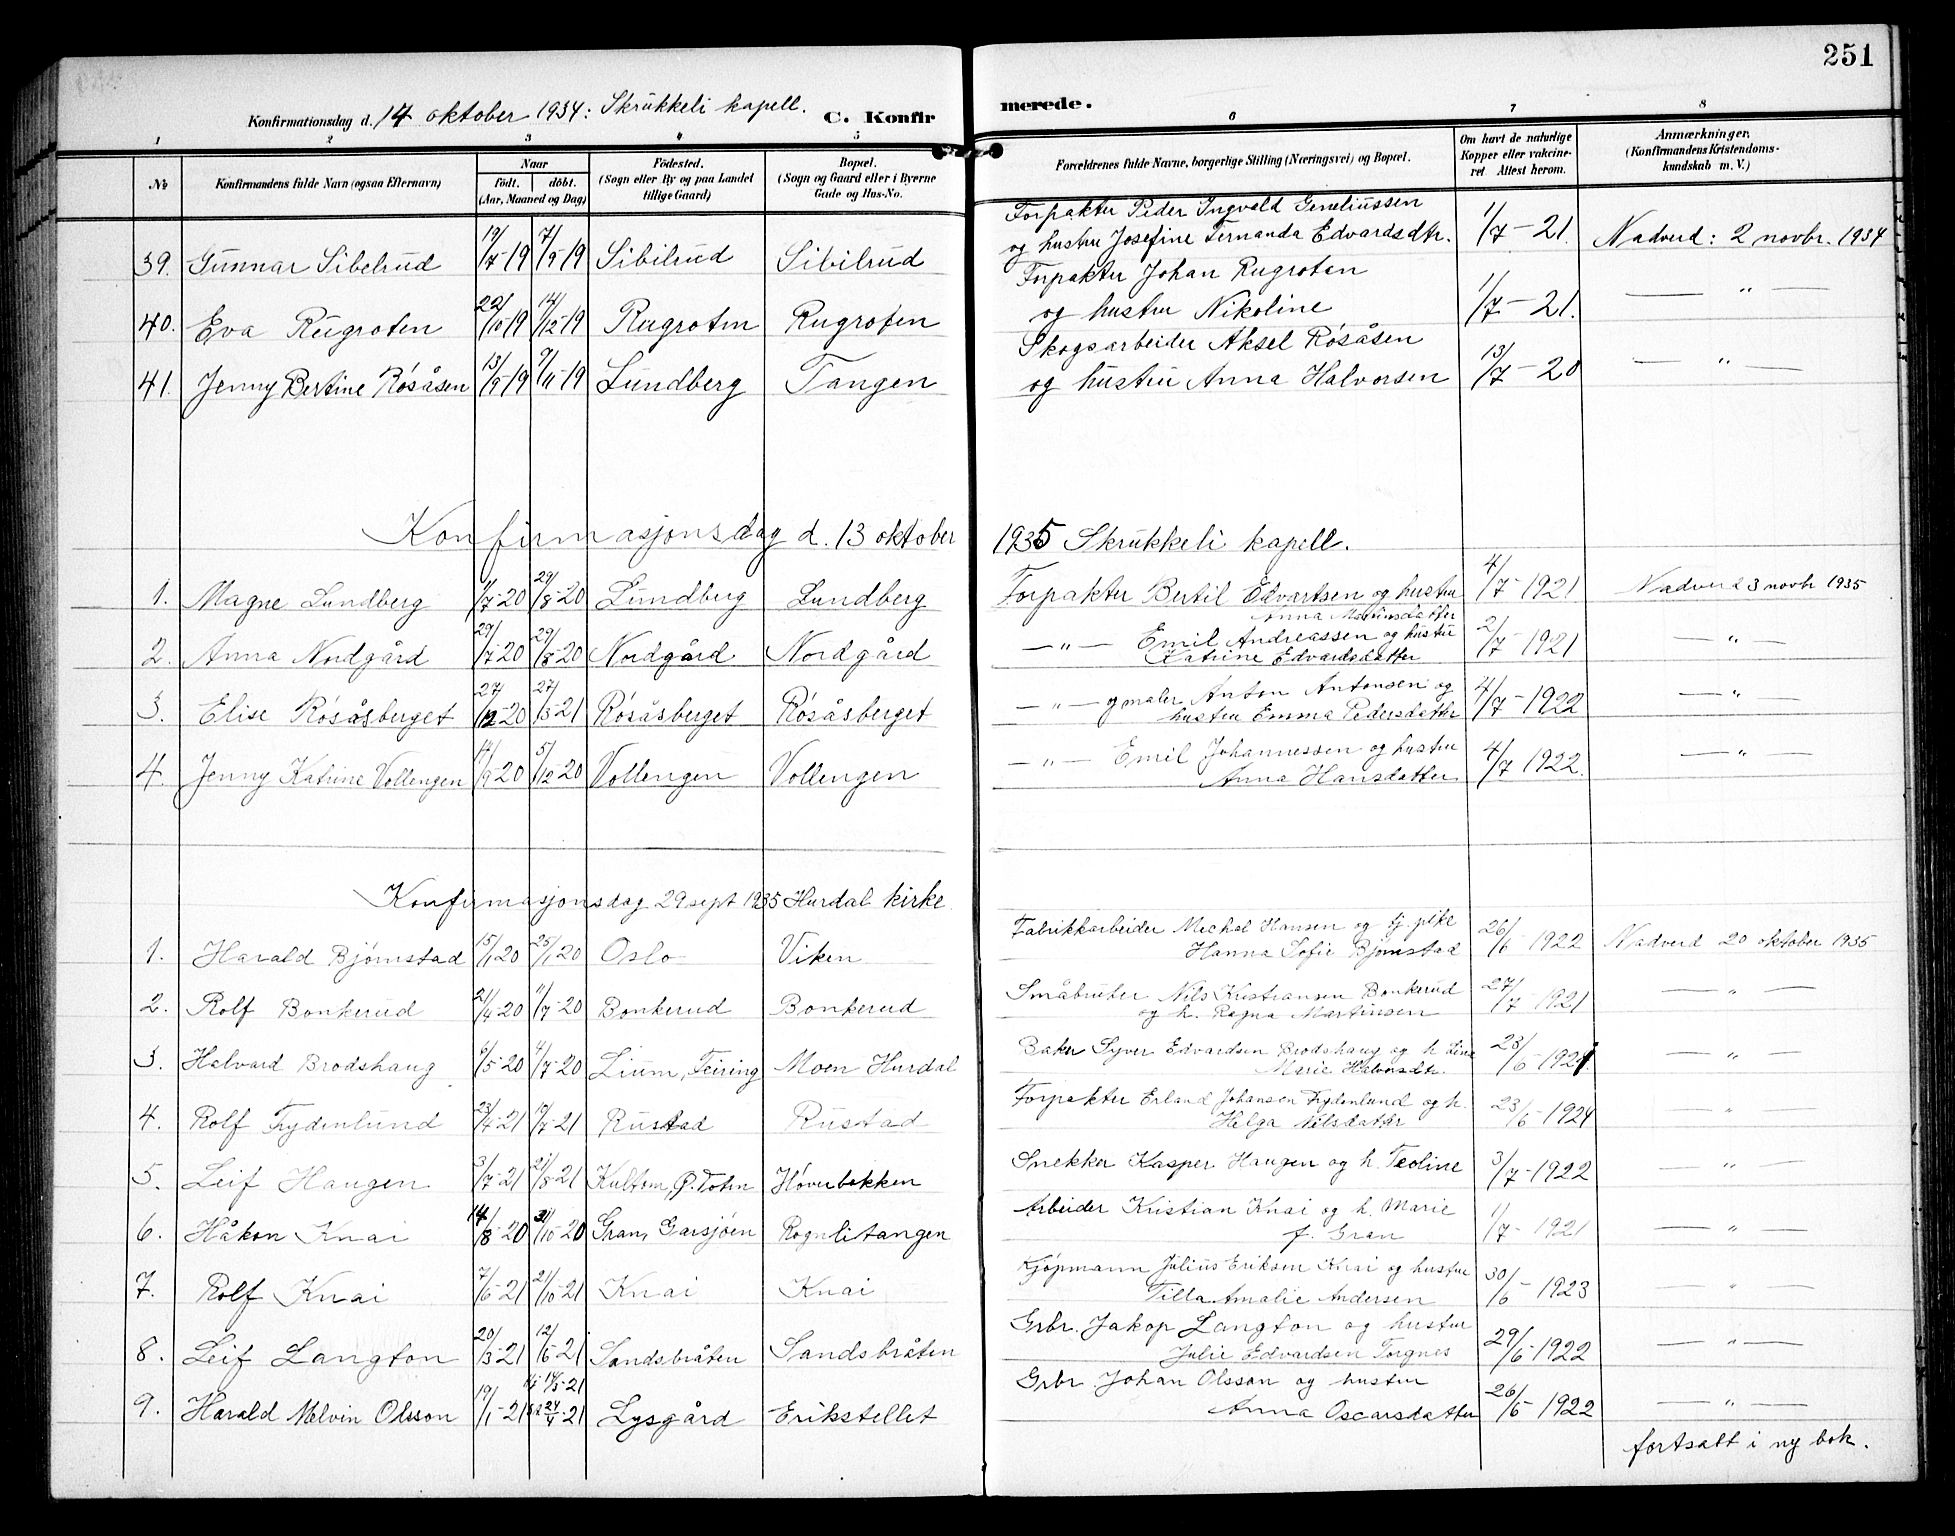 251
Konfirmationsdag d. 14 oktober 1934: Skrukkeli kapell. C. Konfirmerede.
1 2 3 4 5 6 7 8
No Konfirmandens fulde Navn (ogsaa Efternavn) Naar födt. döbt. (Aar, Maaned og Dag) Födested. (Sogn eller By og paa Landet tillige Gaard) Bopæl. (Sogn og Gaard eller i Byerne Gade og Hus-No. Forældrenes fulde Navne, borgerlige Stilling (Næringsvei) og Bopæl. Om havt de naturlige Kopper eller vaccineret. Attest herom. Anmærkninger. (Konfirmandens Kristendomskundskab m. V.)
39. Gunnar Sibelrud 19/7-19 7/9-19 Sibilrud Sibilrud Forpakter Peder Ingvald Geneliussen
og hustru Josefine Fernanda Edvardsdtr. 1/7-21 Nadverd: 2 novbr. 1934
40. Eva Rugroten 22/10-19 14/12-19 Rugroten Rugroten Forpakter Johan Rugroten
og hustru Nikoline 1/7-21. — " —
41. Jenny Bertine Røsåsen 13/9-19 9/11-19 Lundberg Tangen Skogsarbeider Aksel Røsåsen
og hustru Anna Halvorsen 13/7-20 — " —
Konfirmasjonsdag d. 13 oktober 1935 Skrukkeli kapell.
1. Magne Lundberg 11/7-20 29/8-20 Lundberg Lundberg Forpakter Bertil Edvartsen og hustru
Anna Martinsdatter 4/7-1921 Nadverd 3 novbr 1935
2. Anna Nordgård 29/7-20 29/8-20 Nordgård Nordgård — " — Emil Andreassen og hustru
Katrine Edvardsdatter 2/7-1921 — " —
3. Elise Røsåsberget 27/12-20 27/3-21 Røsåsberget Røsåsberget — " — og maler Anton Antonsen og
hustru Emma Pedersdatter 4/7-1922 — " —
4. Jenny Katrine Vollengen 14/9-20 5/12-20 Vollengen Vollengen — " — Emil Johannessen og hustru
Anna Hansdatter 4/7 1922. — " —
Konfirmasjonsdag 29 sept 1935 Hurdal kirke
1. Harald Bjørnstad 15/1-20 25/1-20 Oslo Viken Fabrikkarbeider Mechal Hansen og tj. pike
Hanna Sofie Bjørnstad 26/6-1922 Nadverd 20 oktober 1935
2. Rolf Bonkerud 21/4-20 11/7-20 Bonkerud Bonkerud Småbruker Nils Kristiansen Bonkerud
og h. Ragna Martinsen 27/7-1921 — " —
3. Halvard Brodshaug 6/5-20 4/7-20 Lium, Feiring Moen Hurdal Baker Syver Edvardsen Brodshaug og h Lina
Marie Halvorsdtr. 23/6-1921. — " —
4. Rolf Frydenlund 23/4-21 19/7-21 Rustad Rustad Forpakter Erland Johansen Frydenlund og h.
Helga Nilsdatter 23/6-1924 — " —
5. Leif Haugen 3/7-21 21/8-21 Kultom, Ø. Toten Høverbekken Snekker Kasper Haugen og h. Teoline 3/7-1922 — " —
6. Håkon Knai 14/8-20 31/10-20 Gran, Garsjøen Rognlitangen Arbeider Kristian Knai og h. Marie
f. Gran 1/7-1921 — " —
7. Rolf Knai 7/6-21 21/10-21 Knai Knai Kjøpmann Julius Eriksen Knai og hustru
Tilla Amalie Andersen 30/6-1923 "
8. Leif Langton 20/3-21 12/6-21 Sandsbråten Sandsbråten Grbr. Jakop Langton og hustru
Julie Edvardsen Torgnes 29/6-1922 — " —
9. Harald Melvin Olsson 19/1-21 24/4-21 Lysgård Erikstellet Grbr Johan Olsson og hustru
Anna Oscarsdatter 26/6-1922 — " —
fortsatt i ny bok.